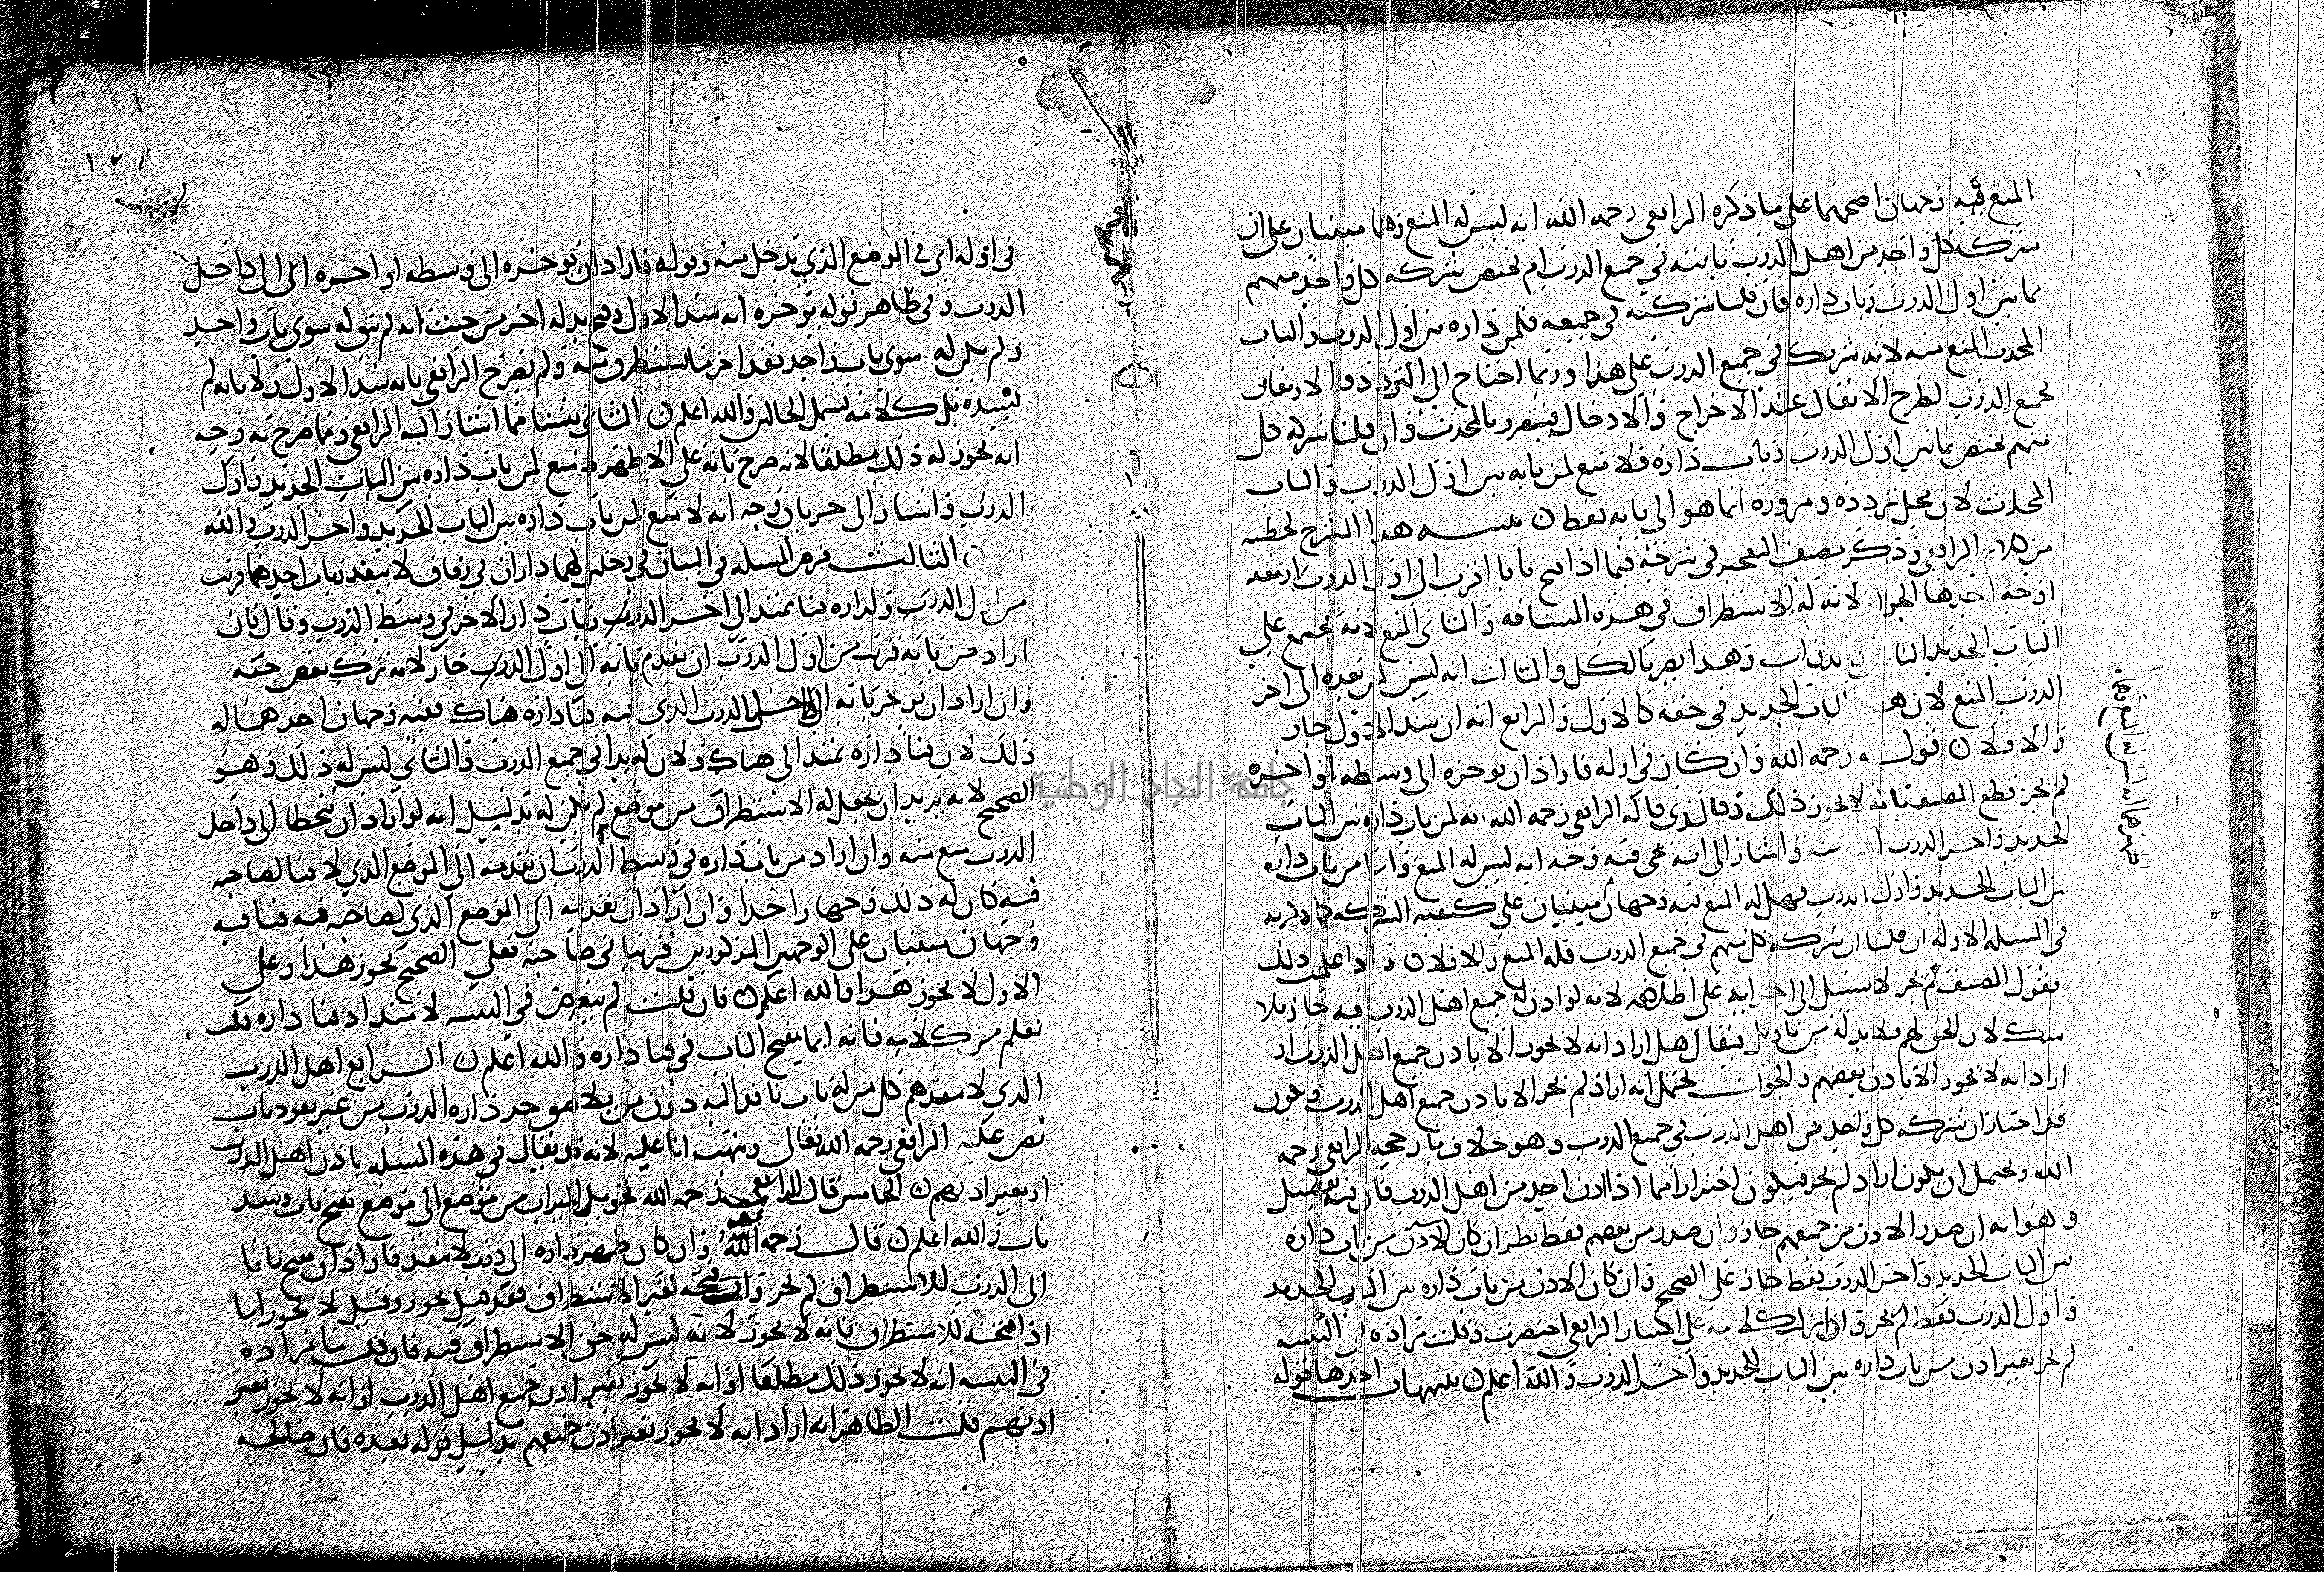 المنع فيه وجهان اصحهما على ما ذكره الرافعي رحمه الله انه ليس له المنع وهما مبنيان على ان
شركه كل واحد من اهل الدرب ثابته في جميع الدرب ام تختص شركه كل واحد منهم
بما بين اول الدرب وباب داره فان قلنا شركته في جميعه فلمن داره بين اول الدرب والباب
المحدث المنع منه لانه شريك في جميع الدرب على هذا وربما احتاج الى التردد والارتفاق
بجميع الدرب لطرح الاثقال عند الاخراج والادخال فيتضرر بالمحدث وان قلنا شركه كل
منهم تختص بما بين اول الدرب وباب داره فلا منع لمن بابه بين اول الدرب والباب
المحدث لان محل تردده ومروره انما هو الى بابه فقط تنبيه هذا الشرح لخصته
من كلام الرافعي وذكر مصنف المعتبر في شرحه فيما اذا فتح بابا اقرب الى اول الدرب اربعه
اوجه احدها الجواز لانه له الاستطراق في هذه المسافه والثاني المنع لانه يجتمع على
الباب الجديد الناس وهذا يضر بالكل والثالث انه ليس لمن بعده الى اخر
الدرب المنع لان الباب الجديد في حقه كالاول والرابع انه ان سد الاول جاز
والا فلا قوله رحمه الله وان كان في اوله فاراد ان يوخره الى وسطه او اخره
لم يجز قطع المصنف بانه لا يجوز ذلك والذي قاله الرافعي رحمه الله انه لمن باب داره بين الباب
الجديد واخر الدرب منه واشار الى انه يجي فيه وجه انه ليس له المنع واما من باب داره
بين الباب الجديد واول الدرب فهل له المنع فيه وجهان مبنيان على كيفيه الشركه كما ذكرته
في المسله الاوله ان قلنا ان شركه كل منهم في جميع الدرب فله المنع والا فلا واذا علمت ذلك
فقول المصنف لم يجز لا سبيل الى اجرايه على اطلاقه لانه لو اذن له جميع اهل الدرب فيه جاز بلا
شك لان الحق لهم فلا بد له من تاويل فيقال هل اراد انه لا يجوز الا باذن جميع اهل الدرب او
اراد انه لا يجوز الا باذن بعضهم والجواب يحتمل انه اراد لم يجز الا باذن جميع اهل الدرب ويكون
قد اختار ان شركه كل واحد من اهل الدرب في جميع الدرب وهو خلاف ما رجحه الرافعي رحمه
الله ويحتمل ان يكون اراد لم يجز فيكون احترازا مما اذا اذن احد من اهل الدرب فان فيه تفصيل
وهو انه ان صدر الاذن من جميعهم جاز وان صدر من بعضهم فقط نظر ان كان الاذن من باب داره
بين الباب الجديد واخر الدرب فقط جاز على الصحيح وان كان الاذن من باب داره بين الباب الجديد
واول الدرب فقط لم يجز وان نزلت كلامه على اختيار الرافعي اختصرت وقلت مراده في التنبيه
لم يجز بغير اذن من باب داره بين الباب الجديد واخر الدرب والله اعلم تنبيهات احدها قوله
في اوله اي في الموضع الذي يدخل منه وقوله فاراد ان يوخره الى وسطه او اخره اي الى داخل
الدرب وفي ظاهر قوله يوخره انه سد الاول وفتح بدله اخر من حيث انه لم يبق له سوى باب واحد
ولم يكن له سوى باب واحد بعد اخر ما يستطرق منه ولم يصرح الرافعي بانه سد الاول ولا بانه لم
يسده بل كلامه يشمل الحالين والله اعلم الثاني بينا مما اشار اليه الرافعي ومما صرح به وجه
انه يجوز له ذلك مطلقا لانه صرح بانه على الاظهر لا منع لمن باب داره بين الباب الجديد واول
الدرب واشار الى جريان وجه انه لا منع لمن باب داره بين الباب الجديد واخر الدرب والله
اعلم الثالث فرض المسله في البيان في رجلين لهما داران في زقاق لا ينفذ وباب احدهما قريب
من اول الدرب ولداره فنا يمتد الى اخر الدرب وباب دار الاخر في وسط الدرب وقال فان
اراد من بابه قريب من اول الدرب ان يقدم بابه الى اول الدرب جاز لانه ترك بعض حقه
وان اراد ان يوخر بابه الى داخل الدرب الذي فيه فنا داره هناك ففيه وجهان احدهما له
ذلك لان فنا داره يمتد الى هناك ولان له يدا في جميع الدرب والثاني ليس له ذلك وهو
الصحيح لانه يريد ان يجعل له الاستطراق من موضع لم يكن له بدليل انه لو اراد ان يتخطا الى داخل
الدرب منع منه وان اراد من باب داره في وسط الدرب ان يقدمه الى الموضع الذي لا فنا لصاحبه
فيه كان له ذلك وجها واحدا وان اراد ان يقدمه الى الموضع الذي لصاحبه فيه فنا ففيه
وجهان مبنيان على الوجهين المذكورين قريبا في صاحبه فعلى الصحيح يجوز هذا وعلى
الاول لا يجوز هذا والله اعلم فان قلت لم يتعرض في التنبيه لامتداد فنا داره قلت
نعلم من كلامه فانه انما يفتح الباب في فنا داره والله اعلم الرابع اهل الدرب
الذي لا ينفذ هم كل من له باب نافذ اليه دون من يلاصق جدار داره الدرب من غير نفوذ باب
نص عليه الرافعي رحمه الله تعالى ونبهت انا عليه لانه قد يقال في هذه المسله باذن اهل الدرب
او بغير اذنهم الخامس قال الرافعي رحمه الله تحويل الميزاب من موضع الى موضع كفتح باب وسد
باب والله اعلم قال رحمه الله وان كان ظهر داره الى درب لا ينفذ فاراد ان يفتح بابا
الى الدرب للاستطراق لم يجز وان فتحه لغير الاستطراق فقد قيل يجوز وقيل لا يجوز اما
اذا فتحه للاستطراق فانه لا يجوز لانه ليس له حق الاستطراق فيه فان قلت ما مراده
في التنبيه انه لا يجوز ذلك مطلقا او انه لا يجوز بغير اذن جميع اهل الدرب او انه لا يجوز بغير
اذنهم قلت الظاهر انه اراد انه لا يجوز بغير اذن جميعهم بدليل قوله بعده فان صالحه